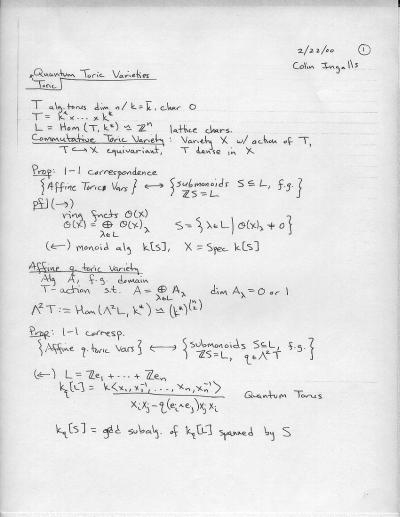 2/22/00 ①
Colin Ingalls
Quantum Toric Varieties
Toric
T alg. torus dim n / k = k̄, char 0
T = k* × ... × k*
L = Hom (T, k*) ≃ ℤⁿ lattice chars.
Commutative Toric Variety: Variety X w/ action of T,
T ↪ X equivariant, T dense in X
Prop: 1-1 correspondence
{Affine Toric Vars} ⟷ {submonoids S ⊆ L, f.g. ℤS = L}
pf) (→)
ring fncts O(X)
O(X) = ⊕_{λ∈L} O(X)_λ S = {λ ∈ L | O(X)_λ ≠ 0}
(←) monoid alg k[S], X = Spec k[S]
Affine q. toric variety
Alg A, f.g. domain
T-action s.t. A = ⊕_{λ∈L} A_λ dim A_λ = 0 or 1
Λ²T := Hom (Λ²L, k*) ≃ (k*)^(n 2)
Prop: 1-1 corresp.
{Affine q. toric Vars} ⟷ {submonoids S ⊆ L, f.g. ℤS = L, q ∈ Λ²T}
(←) L = ℤe₁ + ... + ℤeₙ
k_q[L] = k⟨x₁, x₁⁻¹, ..., xₙ, xₙ⁻¹⟩ Quantum Torus
x_i x_j - q(e_i ∧ e_j) x_j x_i
k_q[S] = gdd subalg. of k_q[L] spanned by S